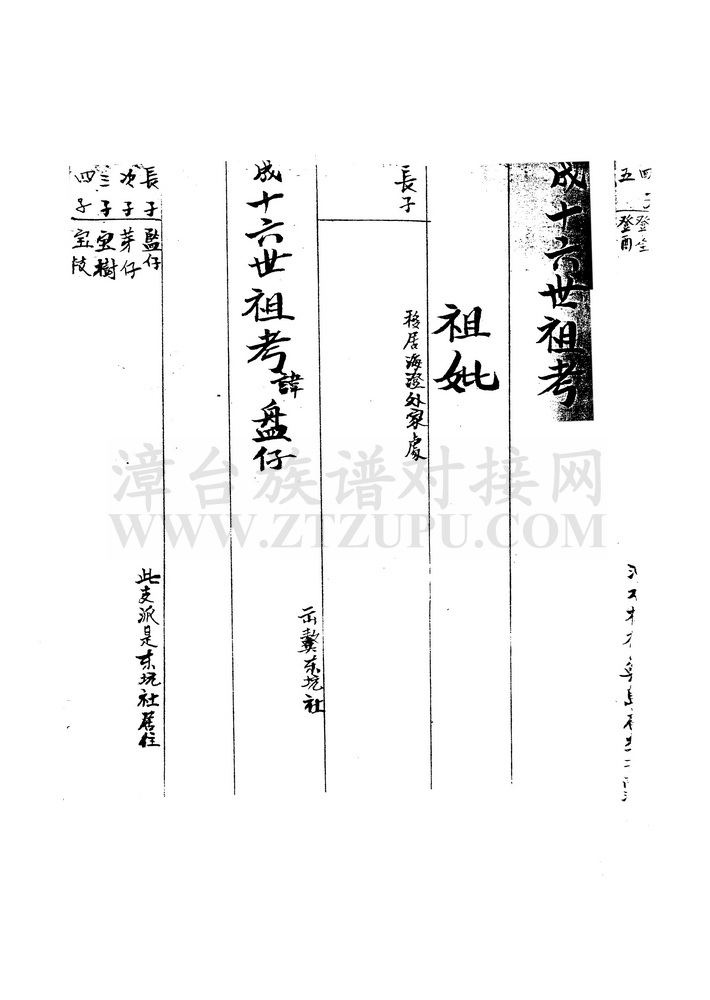 五 癸酉
成十六世祖考
祖妣
長子
移居海澄外家處
成十六世祖考諱盘仔
东坑社
長子 監仔
次子 芽仔
三子 宝樹
四子 宝陵
此支派是东坑社居住
漳台族谱对接网
WWW.ZTZUPU.COM